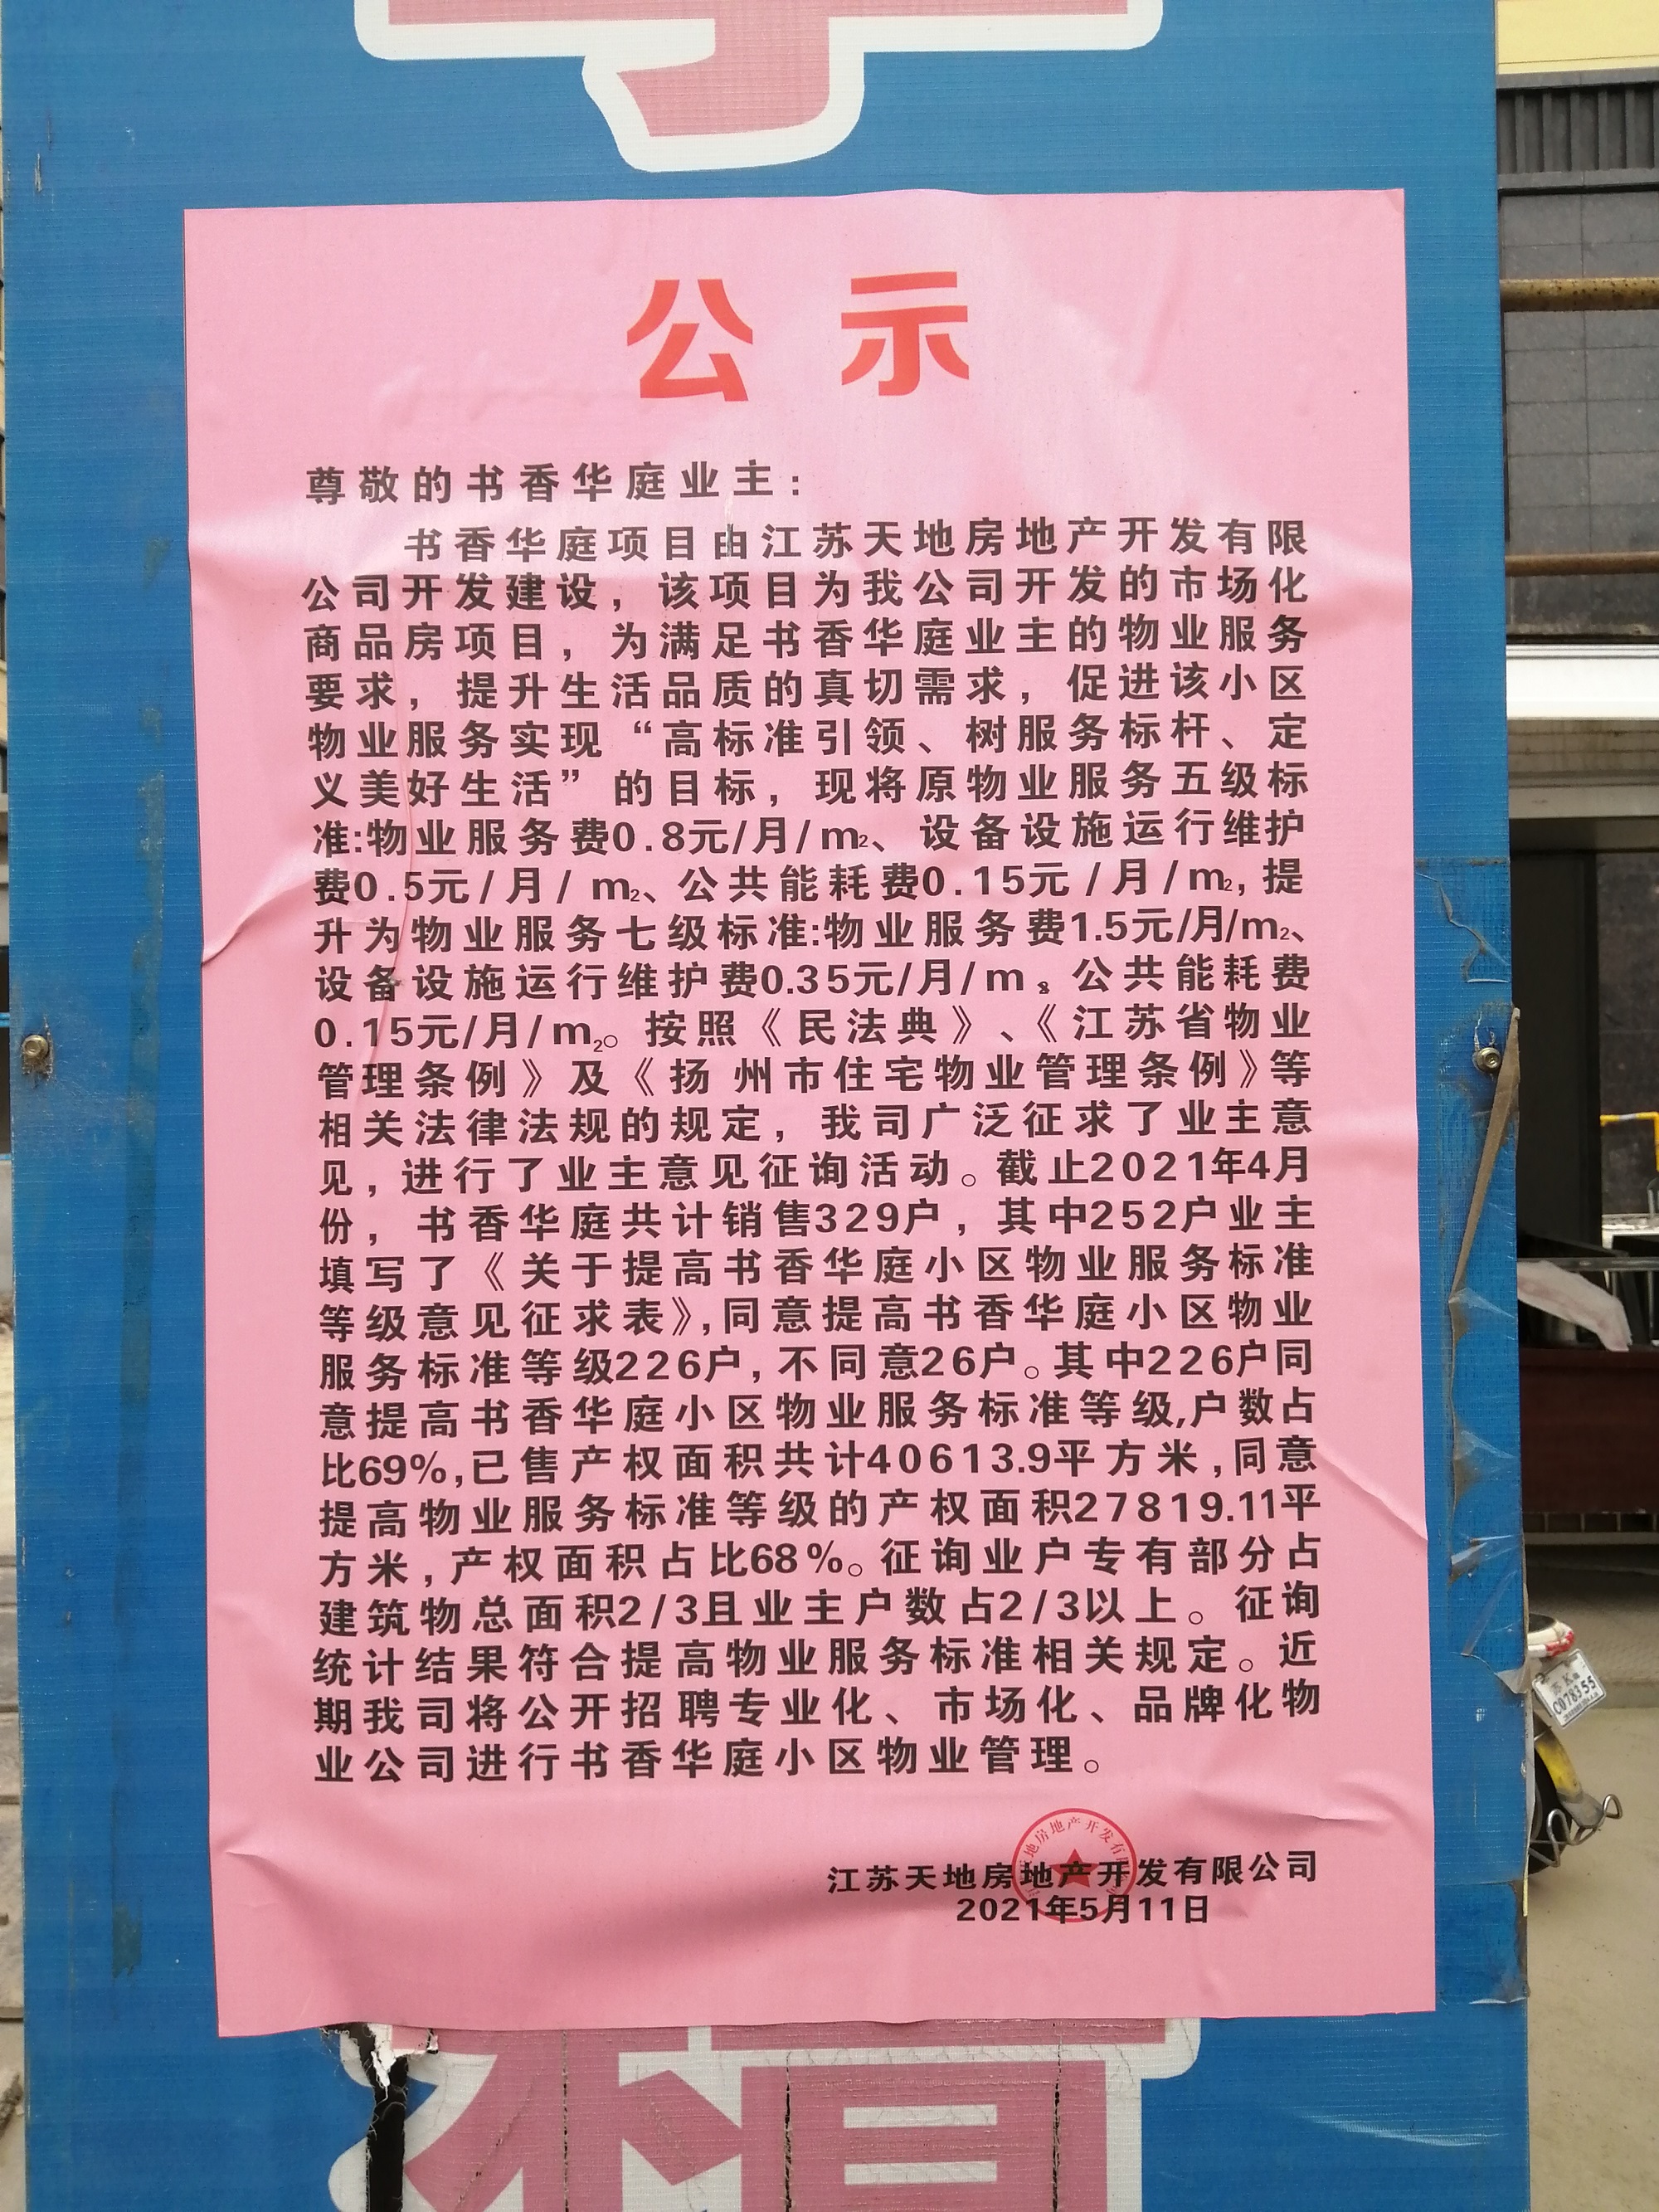 公示
尊敬的书香华庭业主：
书香华庭项目由江苏天地房地产开发有限
公司开发建设，该项目为我公司开发的市场化
商品房项目，为满足书香华庭业主的物业服务
要求，提升生活品质的真切需求，促进该小区
物业服务实现“高标准引领、树服务标杆、定
义美好生活”的目标，现将原物业服务五级标
准:物业服务费0.8元/月/m2、设备设施运行维护
费0.5元/月/m2、公共能耗费0.15元/月/m2,提
升为物业服务七级标准:物业服务费1.5元/月/m2、
设备设施运行维护费0.35元/月/m2、公共能耗费
0.15元/月/m2。按照《民法典》、《江苏省物业
管理条例》及《扬州市住宅物业管理条例》等
相关法律法规的规定，我司广泛征求了业主意
见，进行了业主意见征询活动。截止2021年4月
份，书香华庭共计销售329户，其中252户业主
填写了《关于提高书香华庭小区物业服务标准
等级意见征求表》,同意提高书香华庭小区物业
服务标准等级226户,不同意26户。其中226户同
意提高书香华庭小区物业服务标准等级,户数占
比69%,已售产权面积共计40613.9平方米,同意
提高物业服务标准等级的产权面积27819.11平
方米,产权面积占比68%。征询业户专有部分占
建筑物总面积2/3且业主户数占2/3以上。征询
统计结果符合提高物业服务标准相关规定。近
期我司将公开招聘专业化、市场化、品牌化物
业公司进行书香华庭小区物业管理。
江苏天地房地产开发有限公司
2021年5月11日
C078355